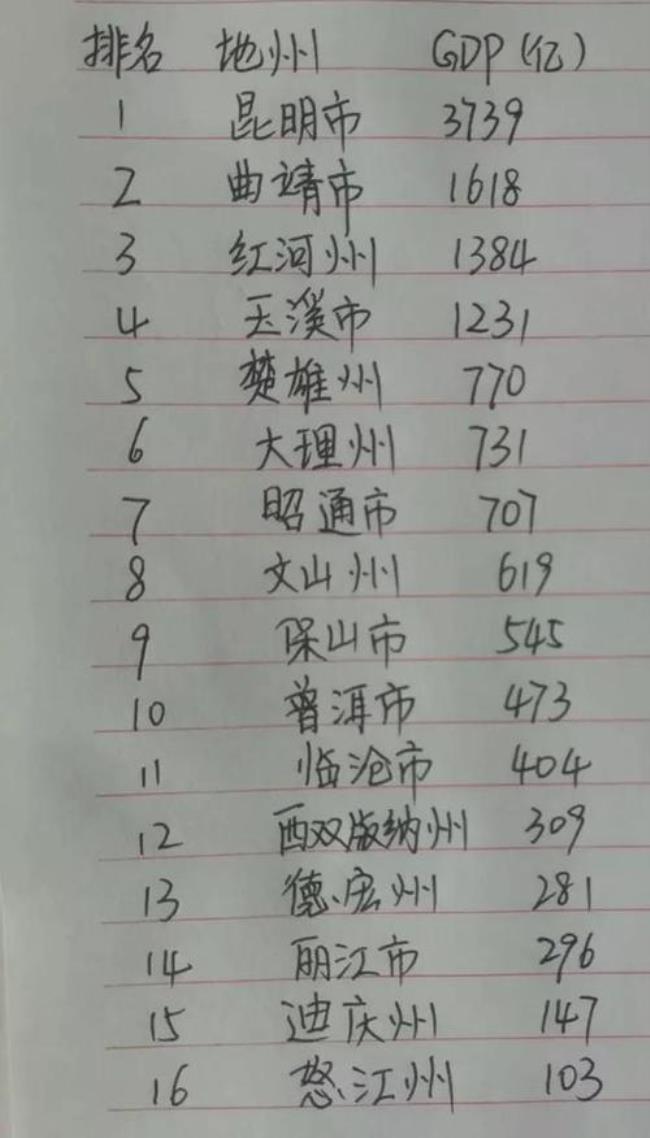 排名 地州 GDP(亿)
1 昆明市 3739
2 曲靖市 1618
3 红河州 1384
4 玉溪市 1231
5 楚雄州 770
6 大理州 731
7 昭通市 707
8 文山州 619
9 保山市 545
10 普洱市 473
11 临沧市 404
12 西双版纳州 309
13 德宏州 281
14 丽江市 296
15 迪庆州 147
16 怒江州 103